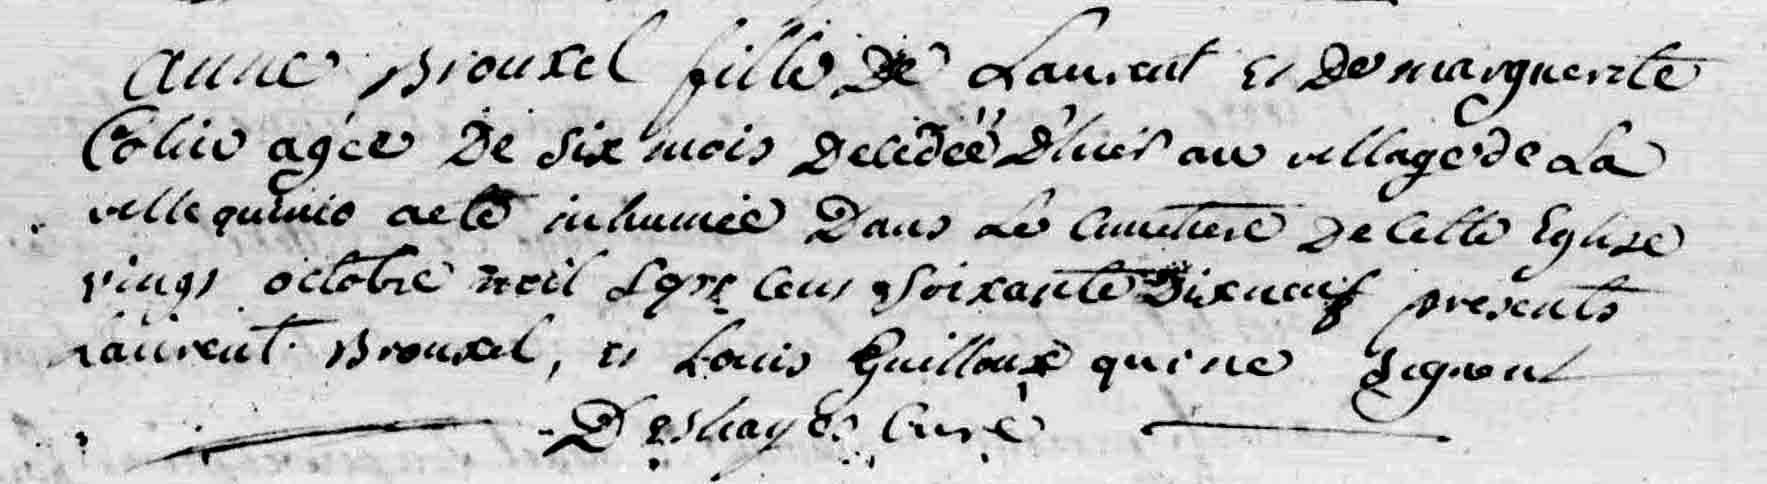 Anne Brouxel fille De Laurent et De marguerite
Colin agée De Six mois Decedée D'hier au village de La
villequinio a eté inhumée Dans Le Cimetiere De Cette Eglise
vingt octobre mil Sept Cent Soixante Dixneuf presents
Laurent Brouxel, et Louis Guilloux qui ne Signent
Deshayes Curé